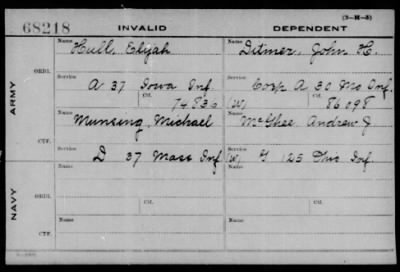 (3-H-3)
68218 INVALID DEPENDENT
Name Hull, Elijah Name Ditmer, John H.
ORIG.
Service Service
A 37 Iowa Inf. Corp A 30 Mo Inf.
Ctf. 74836 (W) Ctf. 86098
ARMY
Name Munsing, Michael Name McGhee Andrew J
CTF.
Service Service
D 37 Mass Inf (W) G 125 Inf.
Name Name
ORIG.
Service Ctf. Service Ctf.
NAVY
Name Name
CTF.
Service Service